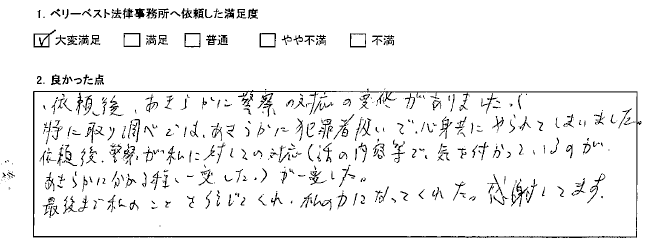 1. ベリーベスト法律事務所へ依頼した満足度
大変満足 満足 普通 やや不満 不満
2. 良かった点
、依頼後、あきらかに警察の対応の変化がありました。
特に取り調べでは、あきらかに犯罪者扱いで、心身共にやられてしまいました。
依頼後、警察が私に対しての対応(話の内容等で、気を付かっているのが
あきらかに分かる程、一変した。)が一変した。
最後まで私のことを信じてくれ、私の力になってくれた。感謝してます。